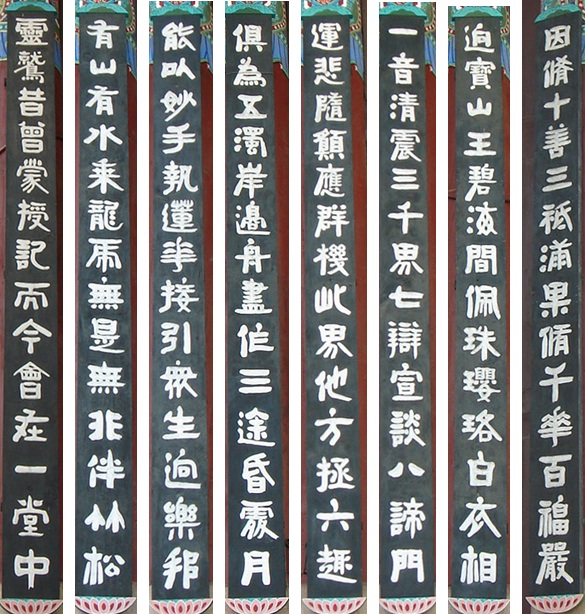 因脩十善三祇滿果脩千華百福嚴
逈寶山王碧海間佩珠瓔珞白衣相
一音清震三千界七辯宣談八諦門
運悲隨願應群機此界他方拯六趣
俱為五濁岸邊舟盡作三途昏處月
能以妙手執蓮華接引衆生逈樂邦
有山有水乘龍虎無是無非伴竹松
靈鷲昔曾蒙授記而今會在一堂中